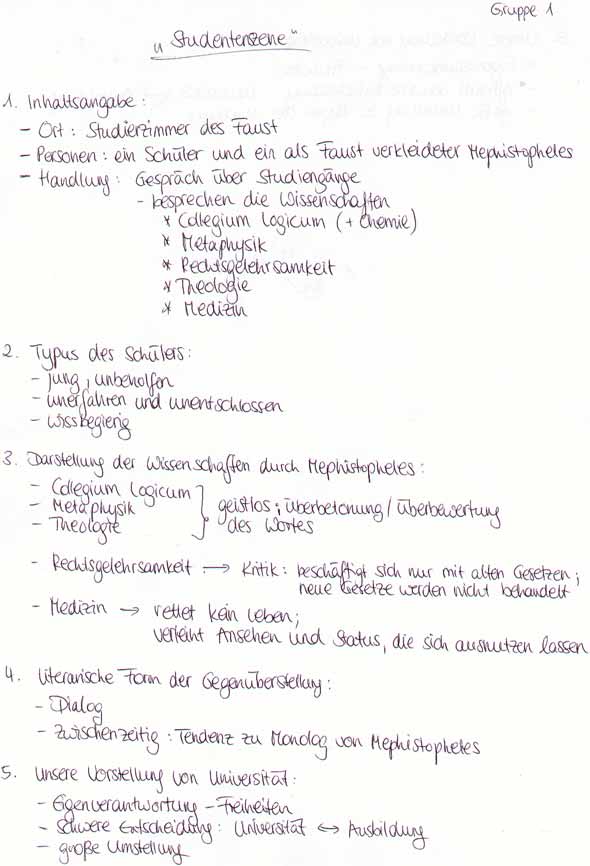 Gruppe 1
"Studentenszene"
1. Inhaltsangabe:
- Ort: Studierzimmer des Faust
- Personen: ein Schüler und ein als Faust verkleideter Mephistopheles
- Handlung: Gespräch über Studiengänge
- besprechen die Wissenschaften
* Collegium Logicum (+ Chemie)
* Metaphysik
* Rechtsgelehrsamkeit
* Theologie
* Medizin
2. Typus des Schülers:
- jung, unbeholfen
- unerfahren und unentschlossen
- wissbegierig
3. Darstellung der Wissenschaften durch Mephistopheles:
- Collegium Logicum
- Metaphysik
- Theologie
geistlos; Überbetonung/Überbewertung
des Wortes
- Rechtsgelehrsamkeit → Kritik: beschäftigt sich nur mit alten Gesetzen;
neue Gesetze werden nicht behandelt
- Medizin → rettet kein Leben;
verleiht Ansehen und Status, die sich ausnutzen lassen
4. Literarische Form der Gegenüberstellung:
- Dialog
- zwischenzeitig: Tendenz zu Monolog von Mephistopheles
5. Unsere Vorstellung von Universität:
- Eigenverantwortung - Freiheiten
- schwere Entscheidung: Universität ↔ Ausbildung
- große Umstellung